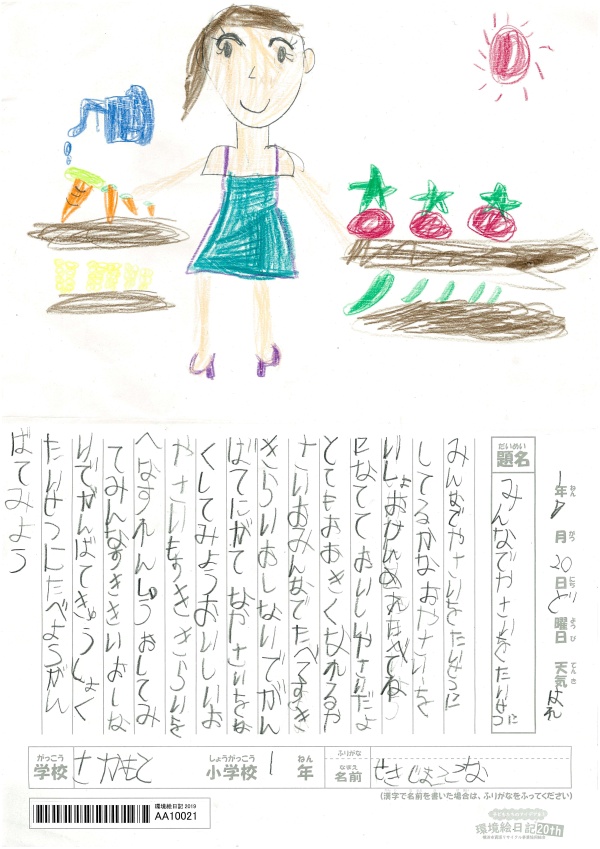 1年8月20日ど曜日 天気はれ
ねん がつ にち ようび てんき
だいめい
題名
みんなでやさいをたいせつに
みんなでやさいをたいせつに
してるかなおやさいを
いしょおけんめいたべてね
とてもおおきくなれるや
さいおみんなでたべてすき
きらいおしないでがん
ばてにがてなやさいをな
くしてみようおいしいお
やさいもすききらいを
へなすれんしゅうおしてみ
てみんなすききいおしな
いでがんばてきゅうしょく
たいせつにたべようがん
ばてみよう
がっこう
学校
さかもと
しょうがっこう
小学校
1
ねん
年
ふりがな
なまえ
名前
(漢字で名前を書いた場合は、ふりがなをふってください)
環境絵日記2019
AA10021
環境絵日記20th